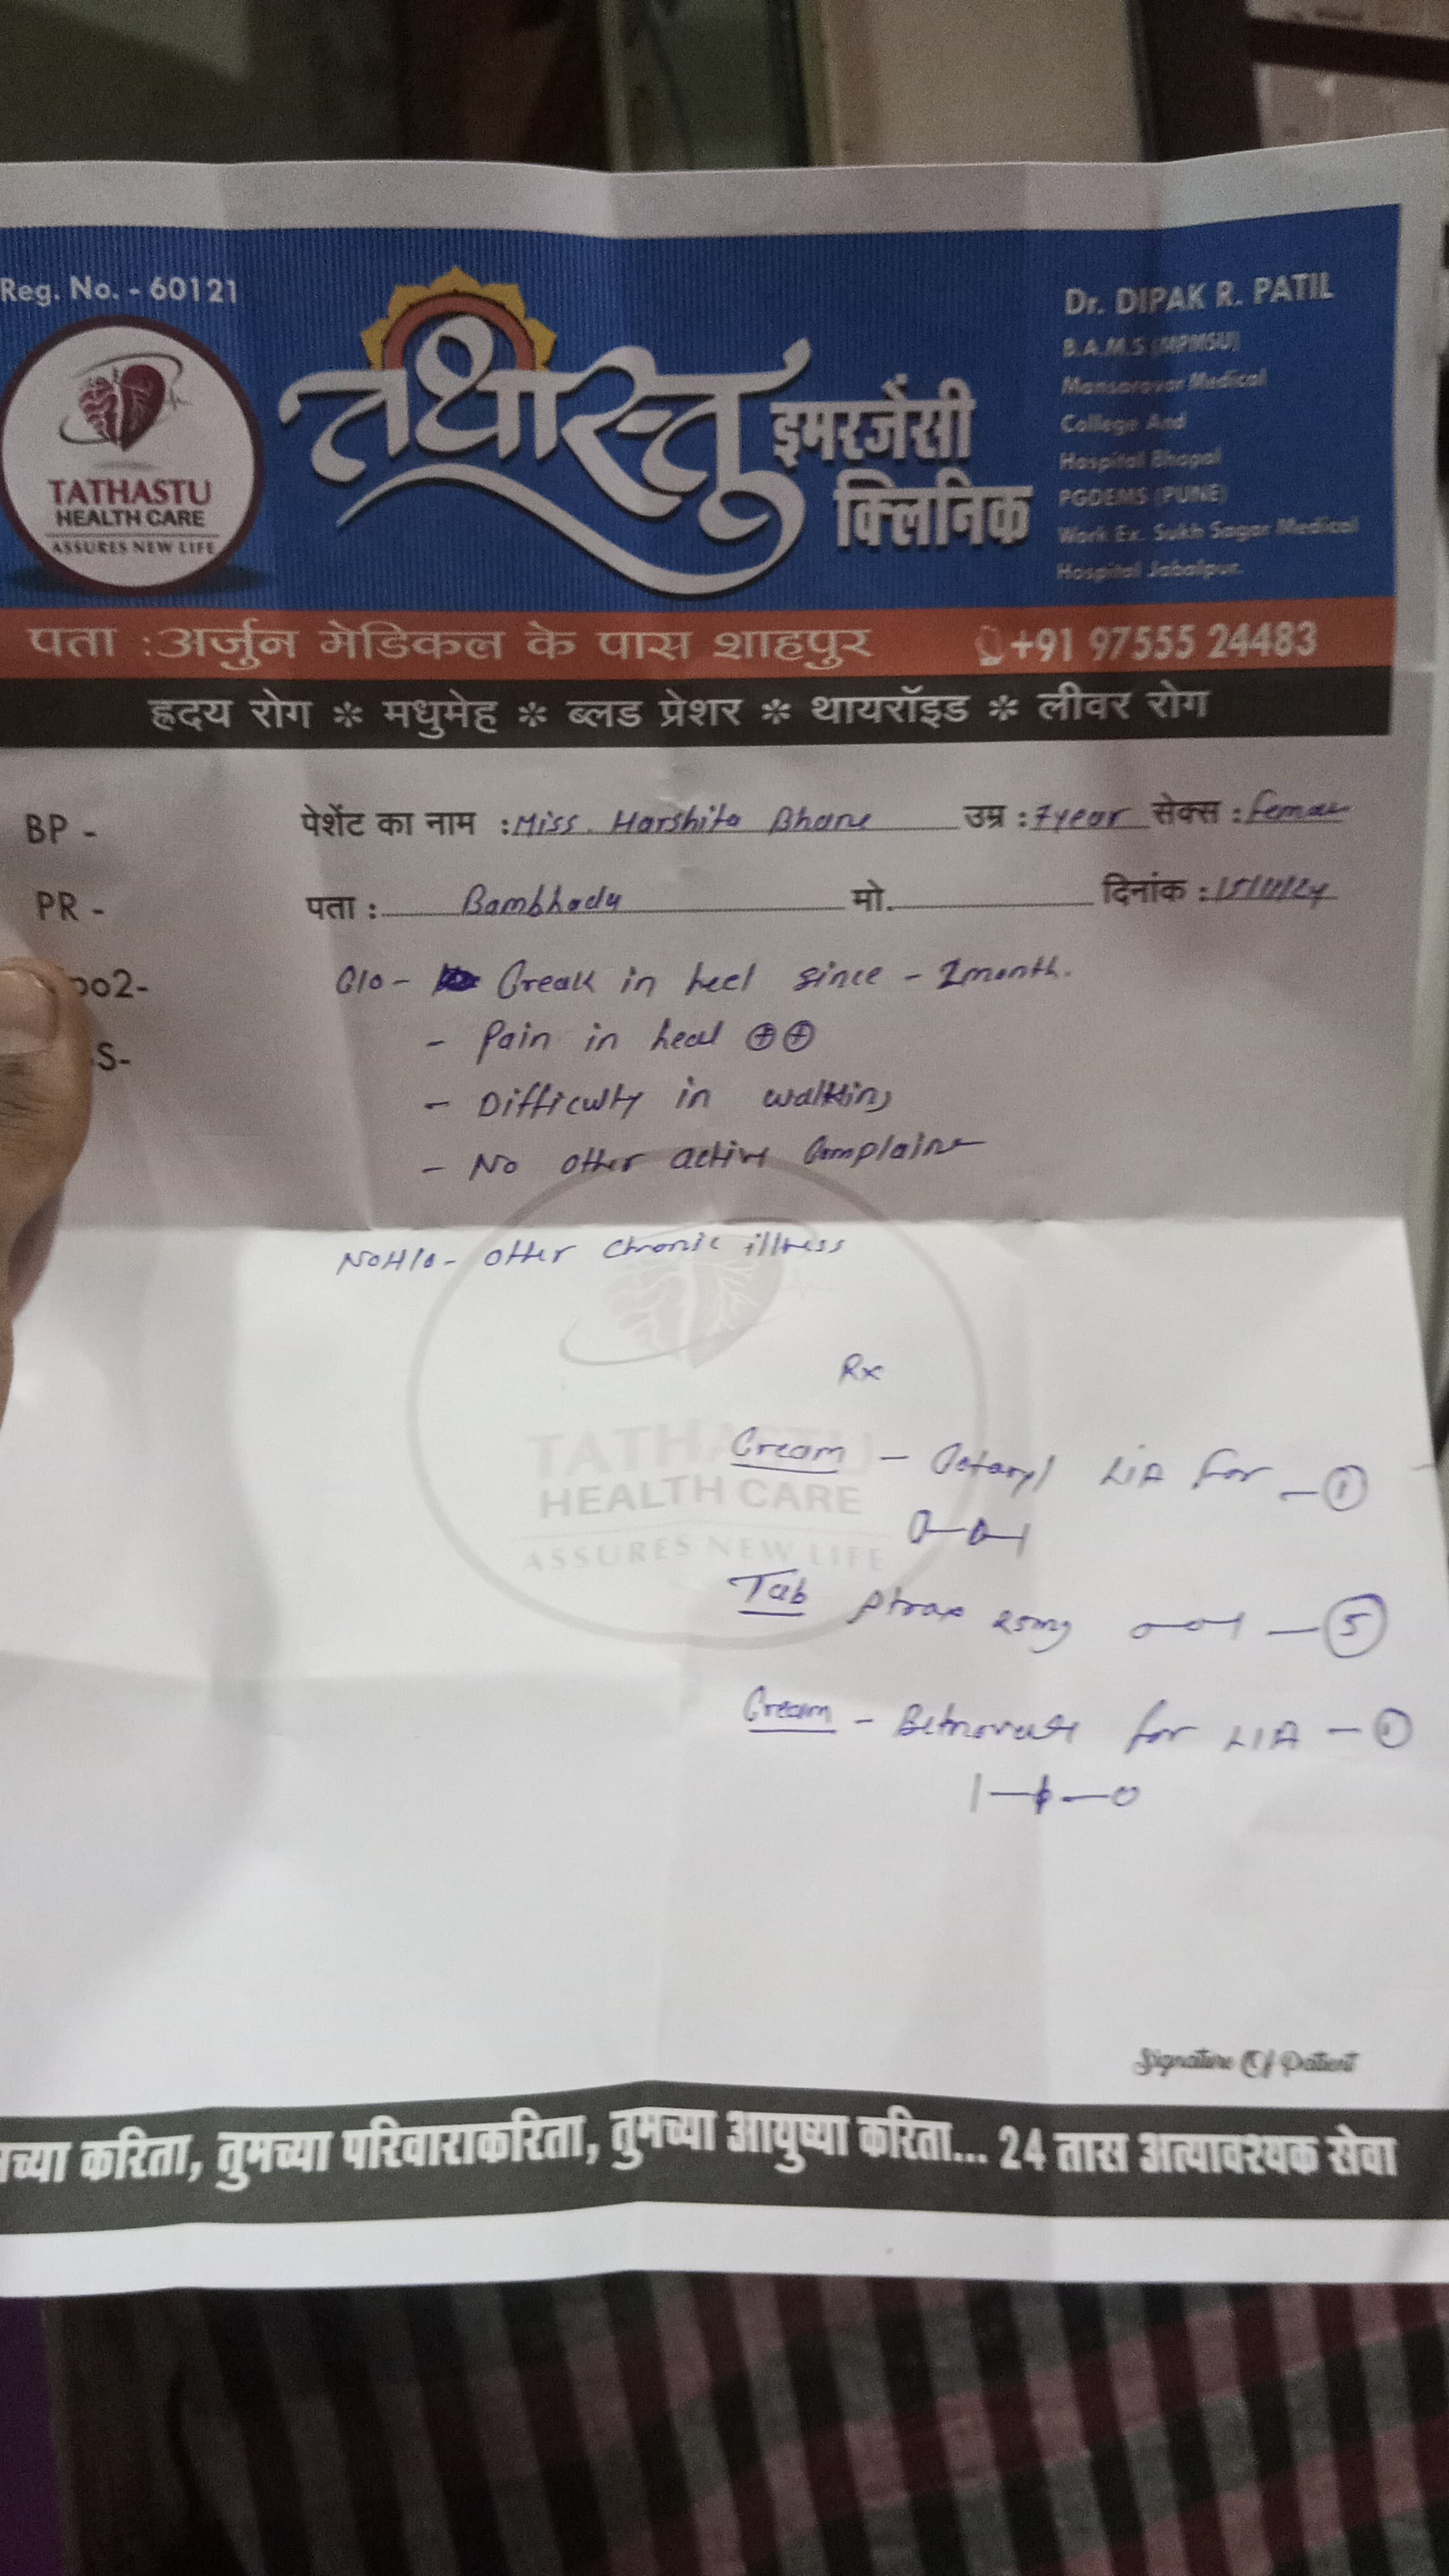 Reg. No. - 60121
TATHASTU
HEALTH CARE
ASSURES NEW LIFE
तथास्तू
इमरजेंसी
क्लिनिक
Dr. DIPAK R. PATIL
B.A.M.S (MPMSU)
Mansarovar Medical
College And
Hospital Bhopal
PGDEMS (PUNE)
Work Ex. Sukh Sagar Medical
Hospital Jabalpur.
पता :अर्जुन मेडिकल के पास शाहपुर +91 97555 24483
ह्रदय रोग * मधुमेह * ब्लड प्रेशर * थायरॉइड * लीवर रोग
BP - पेशेंट का नाम :Miss. Harshita Bhane उम्र : 7year सेक्स :
PR - पता : मो. दिनांक : 15/11/24
po2- C/o - Creak in heel since - 2month.
S- - Pain in heal ⊕⊕
- Difficulty in walking
- No other active Complaine
NoH/o - other chronic illness
Rx
TATHASTU
HEALTH CARE
ASSURES NEW LIFE
Cream - LIA for - 1
0-0-1
Tab 25mg 0-0-1 - 5
Cream - Betnovate for LIA - 1
Signature Of Patient
च्या करिता, तुमच्या परिवाराकरिता, तुमच्या आयुष्या करिता... 24 तास अत्यावश्यक सेवा